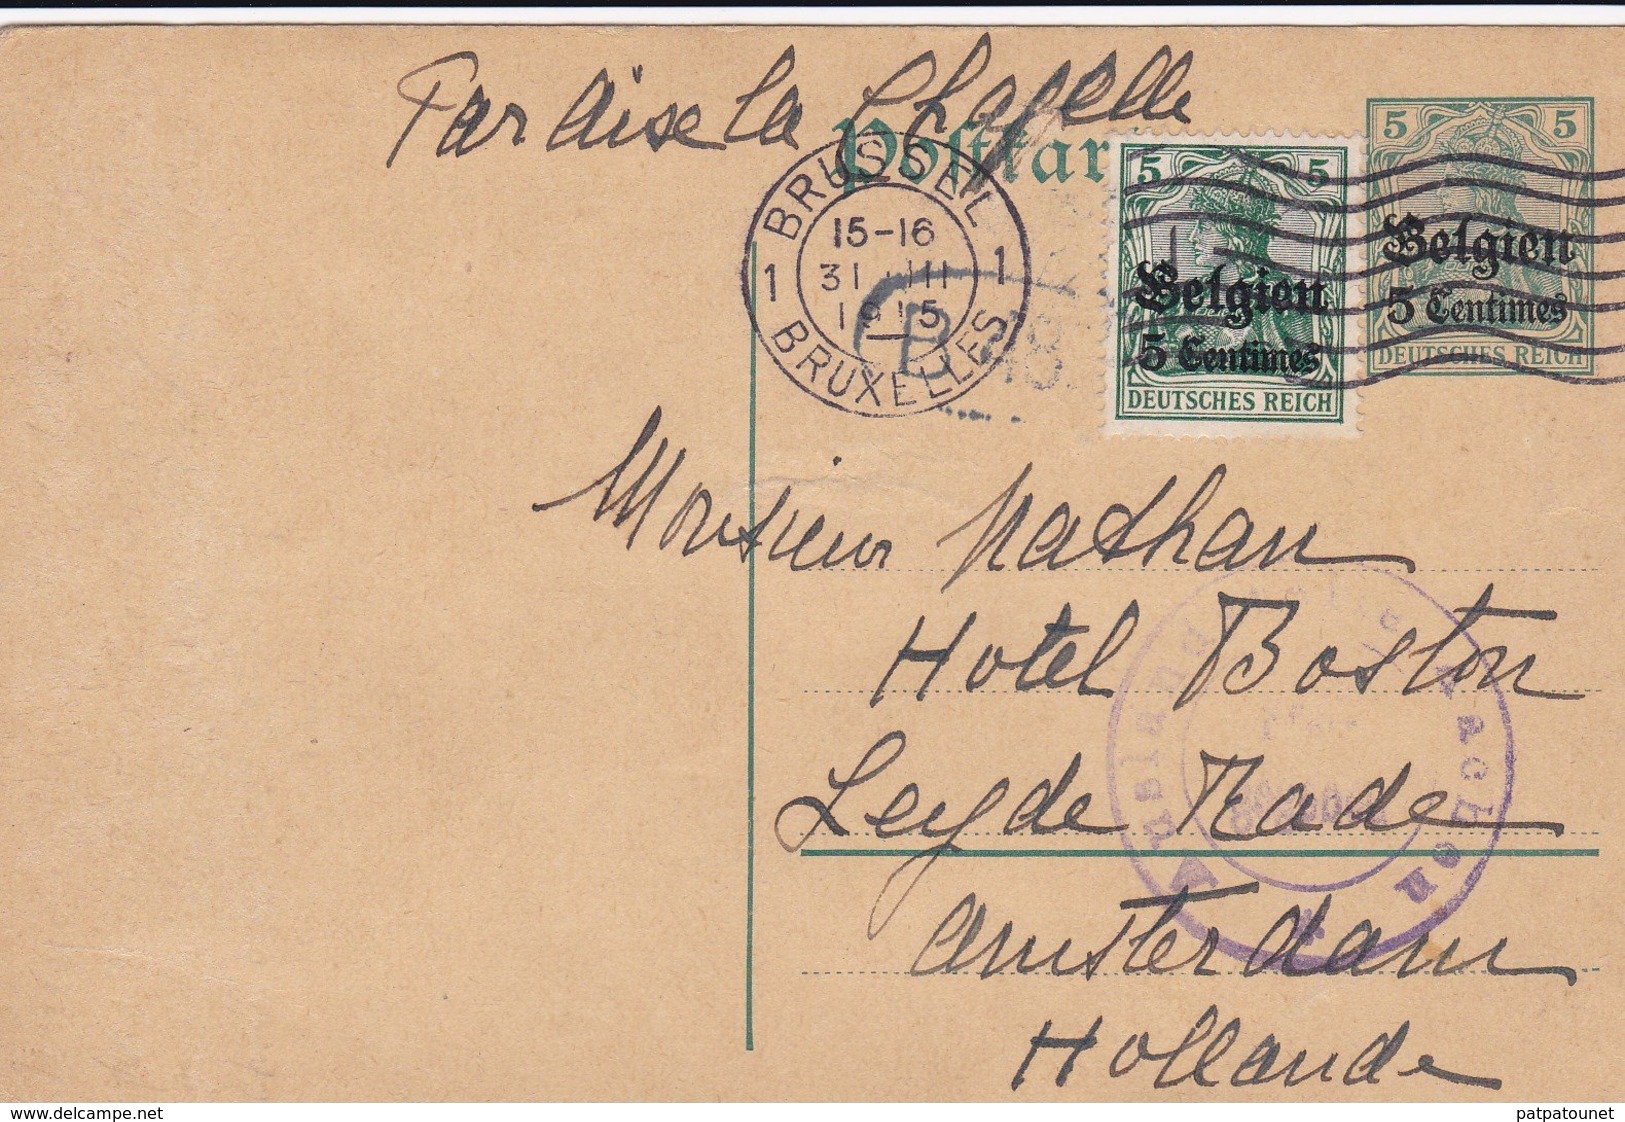 Par Aix la Chapelle
Postkar
5 5
Belgien
5 Centimes
DEUTSCHES REICH
5 5
Belgien
5 Centimes
DEUTSCHES REICH
BRUSSEL
1 1
15-16
31 III
1915
BRUXELLES
B
Monsieur Nathan
Hotel Boston
Leyde Kade
Amsterdam
Hollande
www.delcampe.net
patpatounet